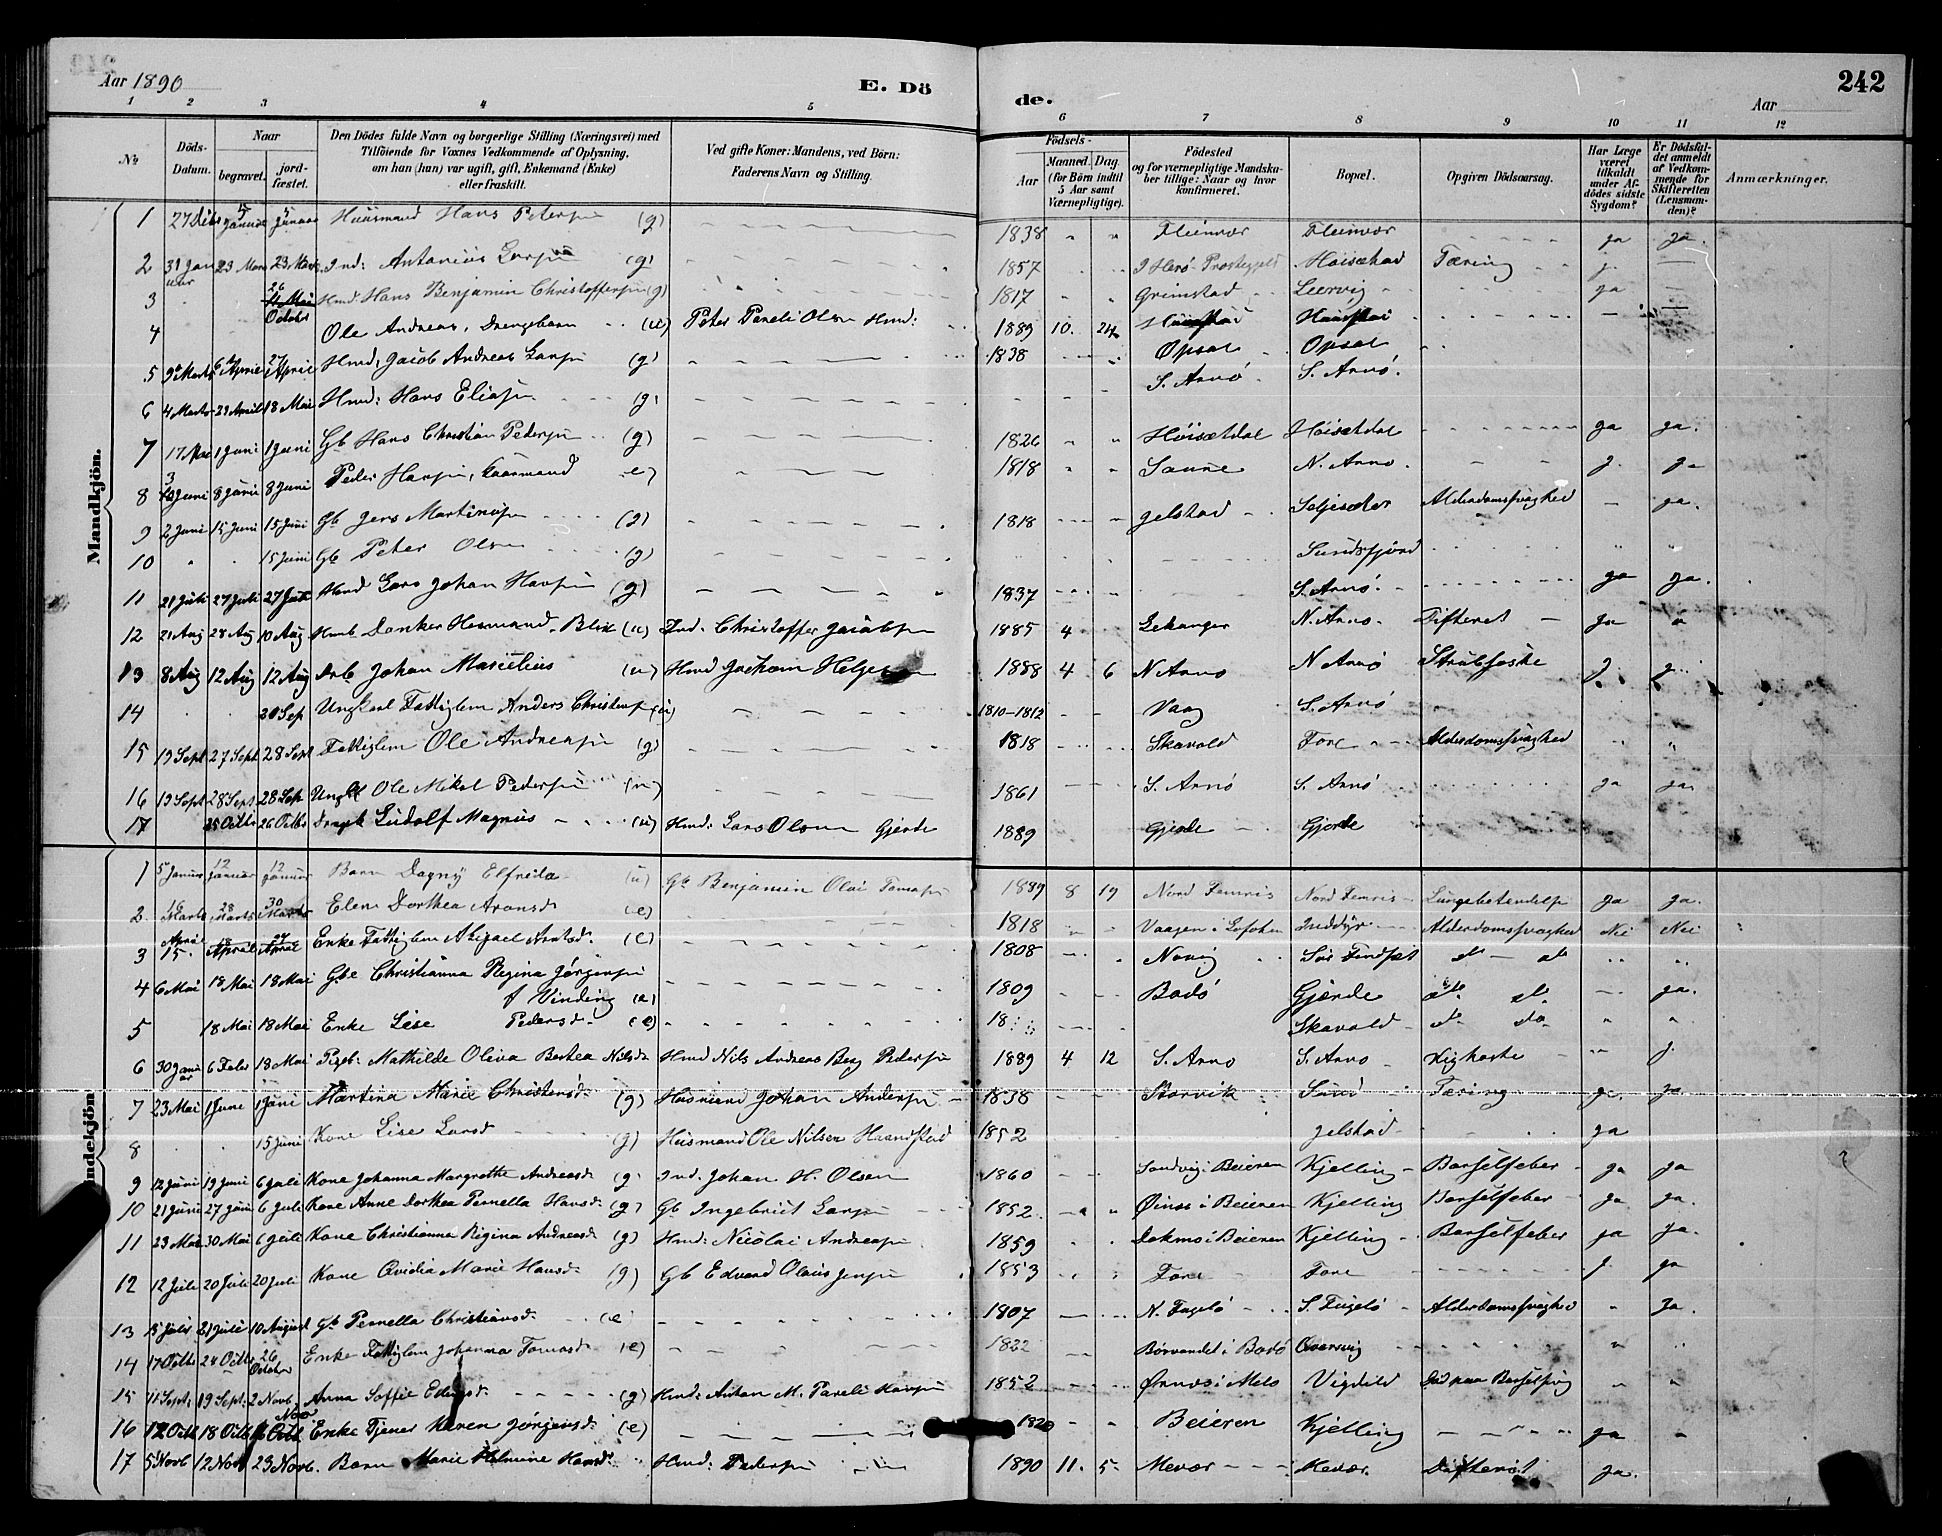 Aar 1890
E. Dö
de.
Aar
242
1 2 3 4 5 6 7 8 9 10 11 12
No
Döds-Datum.
Naar
begravet.
jord-fæstet.
Den Dödes fulde Navn og borgerlige Stilling (Næringsvei) med
Tilföiende for Voxnes Vedkommende af Oplysning,
om han (hun) var ugift, gift, Enkemand (Enke)
eller fraskilt.
Ved gifte Koner: Mandens, ved Börn:
Faderens Navn og Stilling.
Födsels-
Aar
Maaned. Dag.
(for Börn indtil
5 Aar samt
Værnepligtige).
Födested
og for værnepligtige Mandska-
ber tillige: Naar og hvor
konfirmeret.
Bopæl.
Opgiven Dödsaarsag.
Har Læge
været
tilkaldt
under Af-
dödes sidste
Sygdom?
Er Dödsfal-
det anmeldt
af Vedkom-
mende for
Skifteretten
(Lensman-
den)?
Anmærkninger.
Mandkjön.
1 27 5 Januar Januar Huusmand Hans Petersen (g) 1838 Fleinvær Fleinvær ja ja.
2 31 Januar 23 Mars 23 Mars Ind: Antonius Larsen (g) 1857 Tæring
3 26 Hmd Hans Benjamin Christoffersen (g) 1817 Grimstad Leervig ja
4 October Ole Andreas, Drengebarn (u) Peter Pareli Olsen Hmd: 1889 10. 24
5 9 Marts 6 April 27 April Hmd: Jacob Andreas Larsen (g) 1838 Opsal Opsal
6 4 Marts 29 April 18 Mai Hmd: Hans Eliasen (g) S. Arnö S. Arnö.
7 17 Mai 1 Juni 1 Juni Gb Hans Christian Pedersen (g) 1826 Höisetdal Höisetdal ja ja.
8 3 Juni 8 Juni 8 Juni Peder Hansen, Kaarmand (e) 1818 Saure N. Arnö. j. ja
9 2 Juni 15 Juni 15 Juni Gb Jens Martinusen (g) 1818 Jelstad Seljesæter Alderdomssvaghed — ja.
10 15 Juni Gb Peter Olsen (g) Sundsfjord
11 21 Juli 27 Juli 27 Juli Hmd Lars Johan Hansen (g) 1837 S. Arnö. ja ja.
12 21 Aug 28 Aug 10 Aug Danker Hermand Blix (u) Ind: Christoffer Jacobsen 1885 4 N. Arnö. Difteret ja
13 8 Aug 12 Aug 12 Aug Drb Johan Marelius (u) Hmd Jochom 1888 4 6 N Arnö N Arnö Strubehoste j. j.
14 Ungkarl Fattiglem Anders Christensen (u) 1810-1812 Vaag S. Arnö
15 19 Sept 27 Sept 28 Sept Fattiglem Ole Andreasen (g) 1818 Skavold Fore Alderdomssvaghed
16 19 Sept 28 Sept 28 Sep Ungkl Ole Mikal Pedersen (u) 1861 S. Arnö S. Arnö ja ja.
17 25 Octbr 26 Octbr Ludolf Magnus (u) Hmd: Lars Olsen Gjerde 1889 Gjerde Gjerde
1 5 Januar 12 Januar 12 Januar Barn Dagny Elfrida (u) Gb Benjamin Olai Tomasen 1889 8 19 Nord Femris Nord Femris Lungebetændelse ja ja.
2. 16 Marts 28 Marts 30 Marts Elen Dorthea Aronsd. (e) 1818 Vaagen i Lofoten Inddyr Alderdomssvaghed Nei Nei
3 April 15. 18 April April Enke Fattiglem Abigael Arntsd. (e) 1808 Novig Sör Findset do — do
4 6 Mai 18 Mai 18 Mai Gbe Christianna Regina Jörgensen
f Vinding (e) 1809 Bodö Gjærde do do ja.
5 18 Mai 18 Mai Enke Lise Pedersd. (e) 18 Skavold do do
6 30 Januar 6 Febr 18 Mai Pigeb: Mathilde Oliva Berthea Nilsd. Hmd Nils Andreas Berg Pedersen 1889 4 12 S. Arnö S. Arnö Kighoste j.
7 23 Mai 1 June 1 Juni Martina Marie Christensd. (g) Husmand Johan Andersen 1838 Storvik Sund Tæring ja ja.
8 15 Juni Kone Lise Larsd (g) Husmand Ole Nilsen Haandstad 1852 Jelstad ja
9 12 Juni 19 Juni 6 Juli Kone Johanna Margrethe Andreasd. (g) Ind. Johan H. Olsen 1860 Sandvig i Beieren Kjelling Barselfeber ja ja
10 21 Juni 27 Juni 6 Juli Kone Anne Dorthea Pernella Hansd. (g) Gb Ingebrigt Larsen 1852 i Beieren Kjelling Barselfeber ja ja.
11 23 Mai 30 Mai 6 Juli Kone Christianna Regina Andreasd. (g) Hmd: Nicolai Andreasen 1859 Dokmo i Beieren Kjelling Barselfeber ja ja.
12 12 Juli 20 Juli 20 Juli Kone Ovidia Marie Hansd. (g) Gb Edvard Olaus Jensen 1853 Fore Fore j. ja
13 15 Juli 21 Juli 10 August Gb Pernella Christiansd. (e) 1807 N. Fugelö S. Fugelö Alderdomssvaghed " Ja.
14 17 Octbr 24 Octbr 26 October Enke Fattiglem Johanna Tomasd. (e) 1822 Börvandet i Bodö
15 11 Sept: 19 Sept: 2 Novb. Anna Soffie (g) Hmd: Anton M. Pareli Hansen 1852 Örnæs i Melö Vigdild
16 12 Octb 18 Octb Nov Enke Tjener Karen Jörgensd: (e) 1820 Beieren Kjelling ja
17 5 Novb 12 Novb 23 Novb. Barn Marie Helmine Hansd. Hmd: Pedersen 1890 11. 5 Mevær Mevær. Difterit ja.